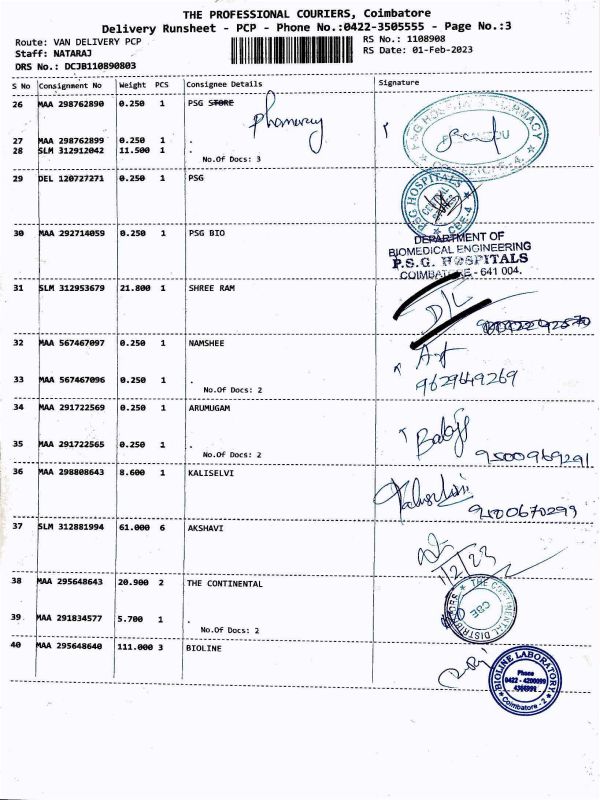 THE PROFESSIONAL COURIERS, Coimbatore
Delivery Runsheet - PCP - Phone No.:0422-3505555 - Page No.:3
Route: VAN DELIVERY PCP
RS No.: 1108908
Staff: NATARAJ
RS Date: 01-Feb-2023
DRS No.: DCJB110890803
S No Consignment No Weight PCS Consignee Details Signature
26 MAA 298762890 0.250 1 PSG STORE
Phamarcy
27 MAA 298762899 0.250 1 .
28 SLM 312912042 11.500 1
No.Of Docs: 3
PSG HOSPITALS PHARMACY
29 DEL 120727271 0.250 1 PSG
PSG HOSPITALS
CENTRAL STORES
CBE-4
30 MAA 292714059 0.250 1 PSG BIO
DEPARTMENT OF
BIOMEDICAL ENGINEERING
P.S.G. HOSPITALS
COIMBATORE - 641 004.
31 SLM 312953679 21.800 1 SHREE RAM
32 MAA 567467097 0.250 1 NAMSHEE
33 MAA 567467096 0.250 1 .
No.Of Docs: 2
9629649269
34 MAA 291722569 0.250 1 ARUMUGAM
35 MAA 291722565 0.250 1 .
No.Of Docs: 2
9500969291
36 MAA 298808643 8.600 1 KALISELVI
Kaliselvi
9500670299
37 SLM 312881994 61.000 6 AKSHAVI
1/2/23
38 MAA 295648643 20.900 2 THE CONTINENTAL
39 MAA 291834577 5.700 1 .
No.Of Docs: 2
THE CONTINENTAL DISTRIBUTORS
CBE
40 MAA 295648640 111.000 3 BIOLINE
BIOLINE LABORATORY
Phone
0422 - 4200099
Coimbatore - 2